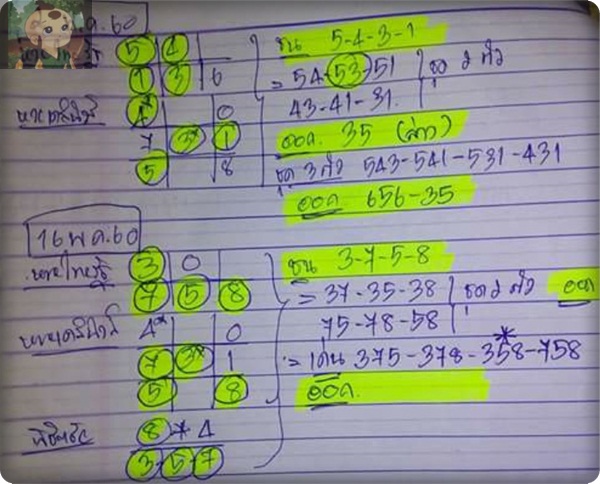 ค.60
5 4
1 3 6
ชน 5-4-3-1
= 54-53-51 ชุด 2 ตัว
43-41-31
4* 0
7 3* 1
5 8
ออก. 35 (ล่าง)
ชุด 3 ตัว 543-541-531-431
ออก 656-35
16 พ.ค.60
หวยไทยรัฐ 3 0
7 5 8
ชน 3-7-5-8
= 37-35-38 ชุด 2 ตัว ออก
75-78-58
4* 0
7 3* 1
5 8
= เด่น 375-378-358*-758
ออก.
8 * 4
3-5-7